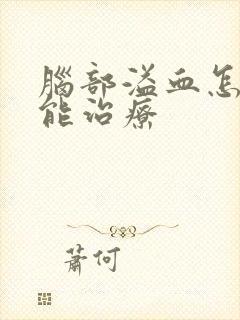 腦部溢血怎
能治療
蕭何